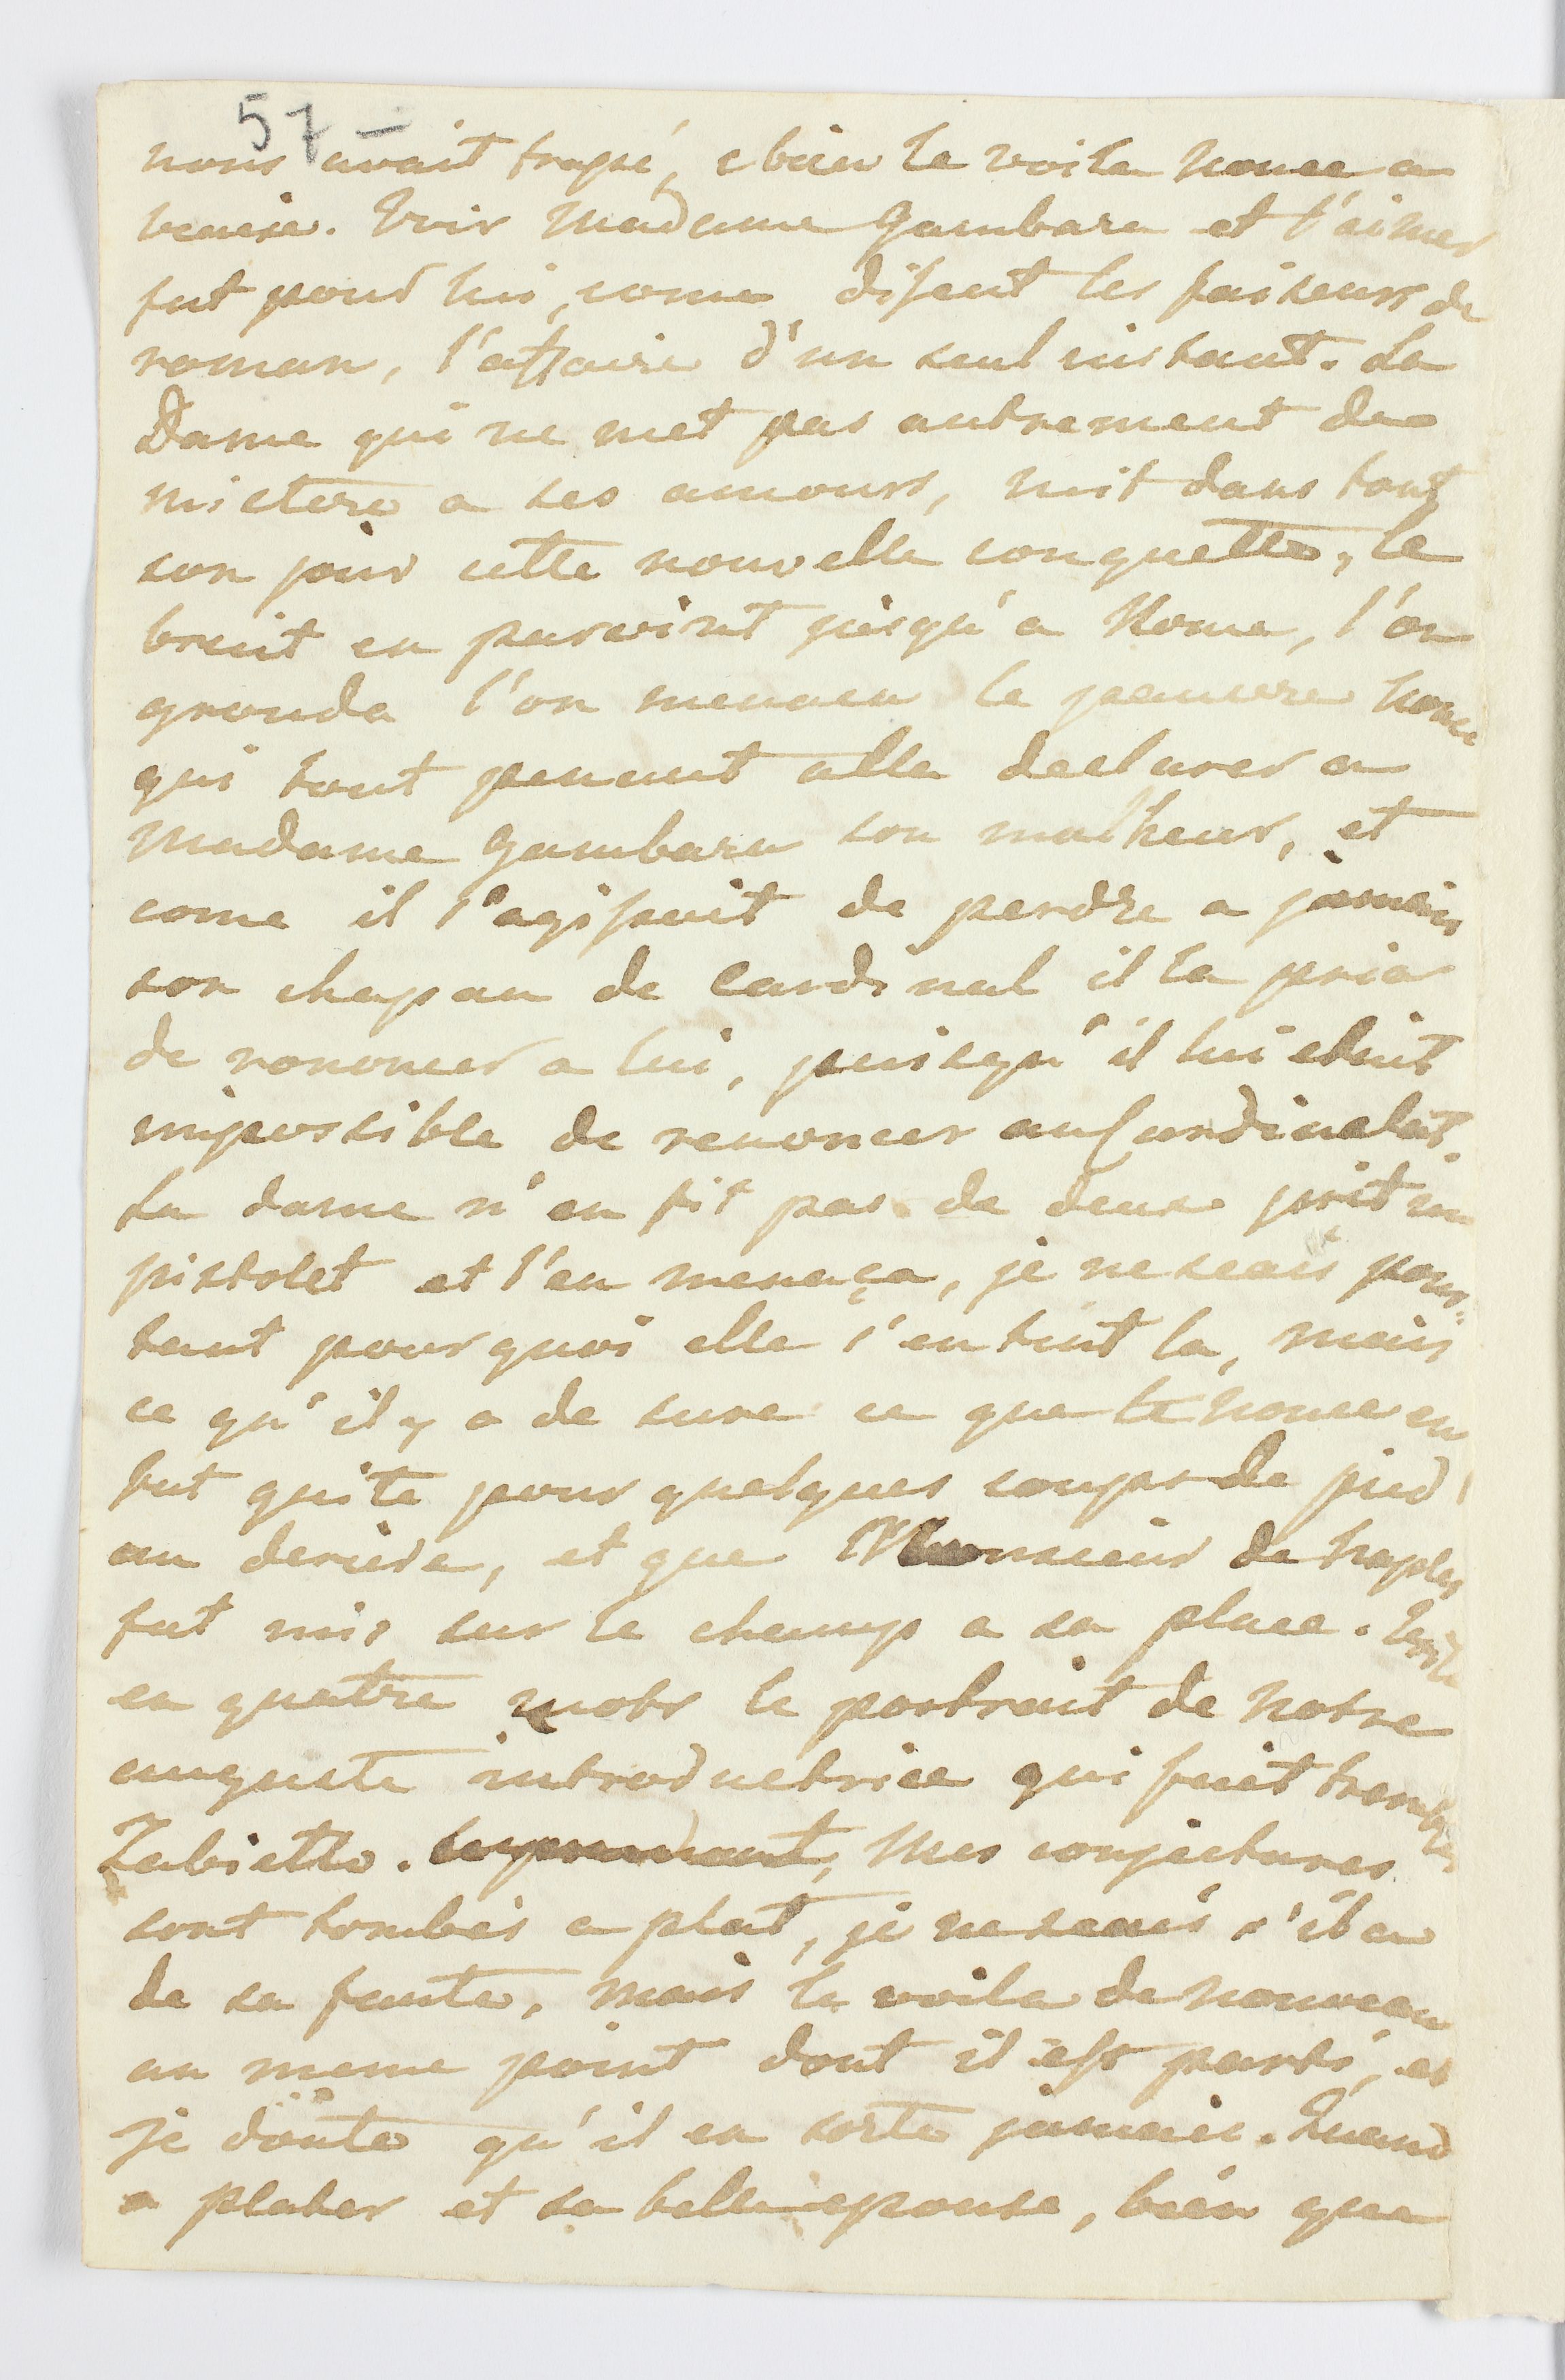 57 —
nous avait frapé, ebien le voila nonce a
venise. Voir Madame Gambara et l'aimer
fut pour lui, come disent les faiseurs de
roman, l'affaire d'un seul instant. La
Dame qui ne met pas autrement de
mistere a ses amours, mit dans tout
son jour cette nouvelle conquette, le
bruit en parvint jusqu'a Rome, l'on
gronda l'on menaca le pauvre nonce
qui tout penaut alla declarer a
Madame Gambara son malheur, et
come il s'agissait de perdre a jamais
son chapau de Cardinal il la pria
de renoncer a lui, puisqu'il lui etait
impossible de renoncer au Cardinalat.
La dame n'en fit pas de deux prit un
pistolet et l'en menaça, je ne scais pour-
tant pourquoi elle s'en tint la, mais
ce qu'il y a de sure ce que le nonce en
fut quite pour quelques coups de pied
au deriere, et que Monsieur de Naples
fut mis sur le champ a sa place. Voila
en quatre mots le portrait de notre
auguste introductrice qui fait trembler
Zabiette. Mes conjectures
sont tombés a plat, je ne scais s'il a
de sa faute, mais le voila de nouveau
au meme point dont il est parti, et
je doute qu'il en sorte jamais. Quand
a plater et sa belle epouse, bien que